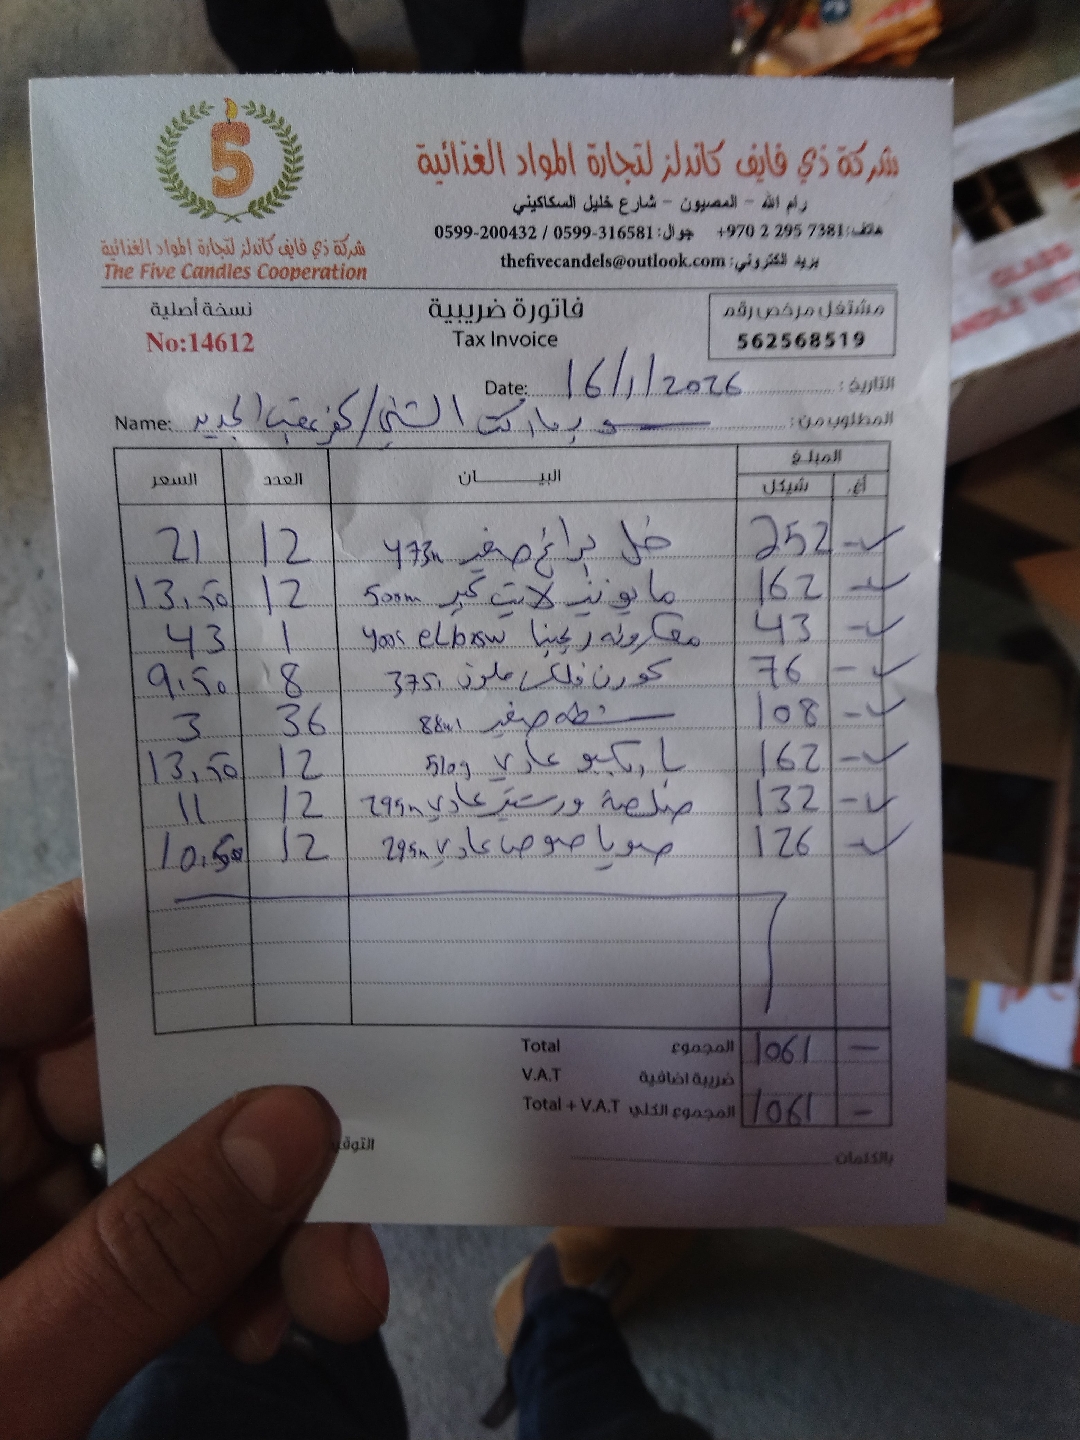 5
شركة ذي فايف كاندلز لتجارة المواد الغذائية
The Five Candles Cooperation
شركة ذي فايف كاندلز لتجارة المواد الغذائية
رام الله - المصيون - شارع خليل السكاكيني
هاتف: 7381 295 2 970+ جوال: 0599-316581 / 0599-200432
بريد الكتروني: thefivecandels@outlook.com
نسخة أصلية
No:14612
فاتورة ضريبية
Tax Invoice
مشتغل مرخص رقم
562568519
Date: 16/1/2026 التاريخ:
Name: سوبرماركت / كفر عقب الجديد المطلوب من:
السعر العدد البيـــان المبلغ
شيكل أغ.
21 12 خل صغير 473m 252 -
13,50 12 مايونيز لايت كبير 500m 162 -
43 1 معكرونه ريجينا elbow 400g 43 -
9,50 8 كورن فلكس ملون 375g 76 -
3 36 شطه صغير 88ml 108 -
13,50 12 باربكيو عادي 510g 162 -
11 12 صلصة ورستر عادي 295m 132 -
10,50 12 صويا صوص عادي 295m 126 -
Total المجموع 1061 -
V.A.T ضريبة اضافية
Total + V.A.T المجموع الكلي 1061 -
بالكلمات
GLASS